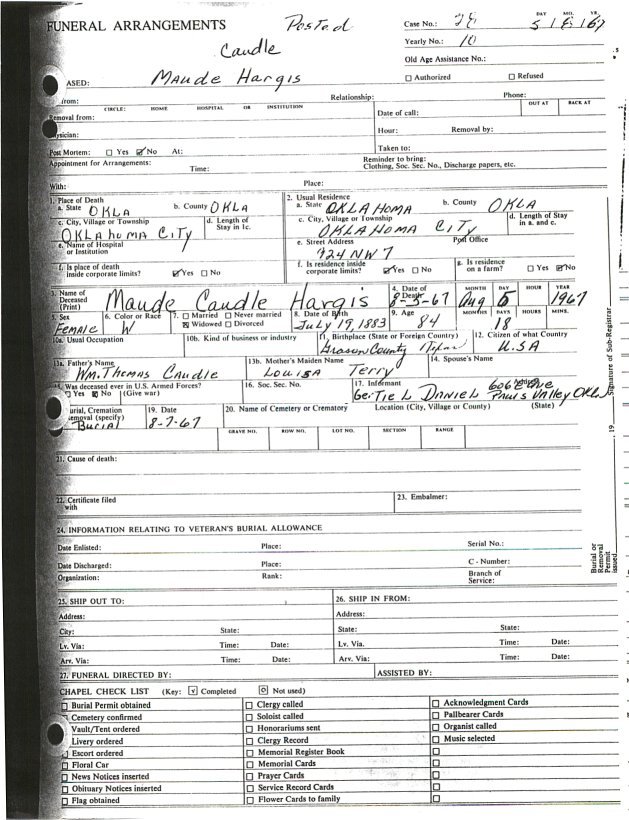 FUNERAL ARRANGEMENTS Posted Case No.: 28 DAY MO. YR. 5 / 8 / 67
Caudle Yearly No.: 10
Old Age Assistance No.:
ASED: Maude Hargis ☐ Authorized ☐ Refused
From: Relationship: Phone:
CIRCLE: HOME HOSPITAL OR INSTITUTION OUT AT BACK AT
Removal from: Date of call:
ysician: Hour: Removal by:
Post Mortem: ☐ Yes ☑ No At: Taken to:
Appointment for Arrangements: Time: Reminder to bring:
Clothing, Soc. Sec. No., Discharge papers, etc.
With: Place:
1. Place of Death 2. Usual Residence
a. State OKLA b. County OKLA a. State OKLAHOMA b. County OKLA
c. City, Village or Township OKLAHOMA CITY d. Length of Stay in 1c. c. City, Village or Township OKLAHOMA CITY d. Length of Stay in a. and c.
e. Name of Hospital or Institution e. Street Address 924 NW 7 Post Office
f. Is place of death inside corporate limits? ☑ Yes ☐ No f. Is residence inside corporate limits? ☑ Yes ☐ No g. Is residence on a farm? ☐ Yes ☑ No
3. Name of Deceased (Print) Maude Caudle Hargis 4. Date of Death 8-5-67 MONTH Aug DAY 5 HOUR YEAR 1967
5. Sex Female 6. Color or Race W 7. ☐ Married ☐ Never married ☒ Widowed ☐ Divorced 8. Date of Birth July 19, 1883 9. Age 84 MONTHS DAYS 18 HOURS MINS.
10a. Usual Occupation 10b. Kind of business or industry 11. Birthplace (State or Foreign Country) Grason County Texas 12. Citizen of what Country U.S.A
13a. Father's Name Wm. Thomas Caudle 13b. Mother's Maiden Name Louisa Terry 14. Spouse's Name
15. Was deceased ever in U.S. Armed Forces? ☐ Yes ☒ No (Give war) 16. Soc. Sec. No. 17. Informant Gertie L Daniel Address 606 Pauls Valley Okla
urial, Cremation emoval (specify) Burial 19. Date 8-7-67 20. Name of Cemetery or Crematory Location (City, Village or County) (State)
GRAVE NO. ROW NO. LOT NO. SECTION RANGE
21. Cause of death:
22. Certificate filed with 23. Embalmer:
24. INFORMATION RELATING TO VETERAN'S BURIAL ALLOWANCE
Date Enlisted: Place: Serial No.:
Date Discharged: Place: C - Number:
Organization: Rank: Branch of Service:
25. SHIP OUT TO: 26. SHIP IN FROM:
Address: Address:
City: State: State: State:
Lv. Via: Time: Date: Lv. Via. Time: Date:
Arv. Via: Time: Date: Arv. Via: Time: Date:
27. FUNERAL DIRECTED BY: ASSISTED BY:
CHAPEL CHECK LIST (Key: ☑ Completed ☐ Not used)
☐ Burial Permit obtained ☐ Clergy called ☐ Acknowledgment Cards
☐ Cemetery confirmed ☐ Soloist called ☐ Pallbearer Cards
☐ Vault/Tent ordered ☐ Honorariums sent ☐ Organist called
☐ Livery ordered ☐ Clergy Record ☐ Music selected
☐ Escort ordered ☐ Memorial Register Book ☐
☐ Floral Car ☐ Memorial Cards ☐
☐ News Notices inserted ☐ Prayer Cards ☐
☐ Obituary Notices inserted ☐ Service Record Cards ☐
☐ Flag obtained ☐ Flower Cards to family ☐
Signature of Sub-Registrar
, 19
Burial or Removal Permit issued